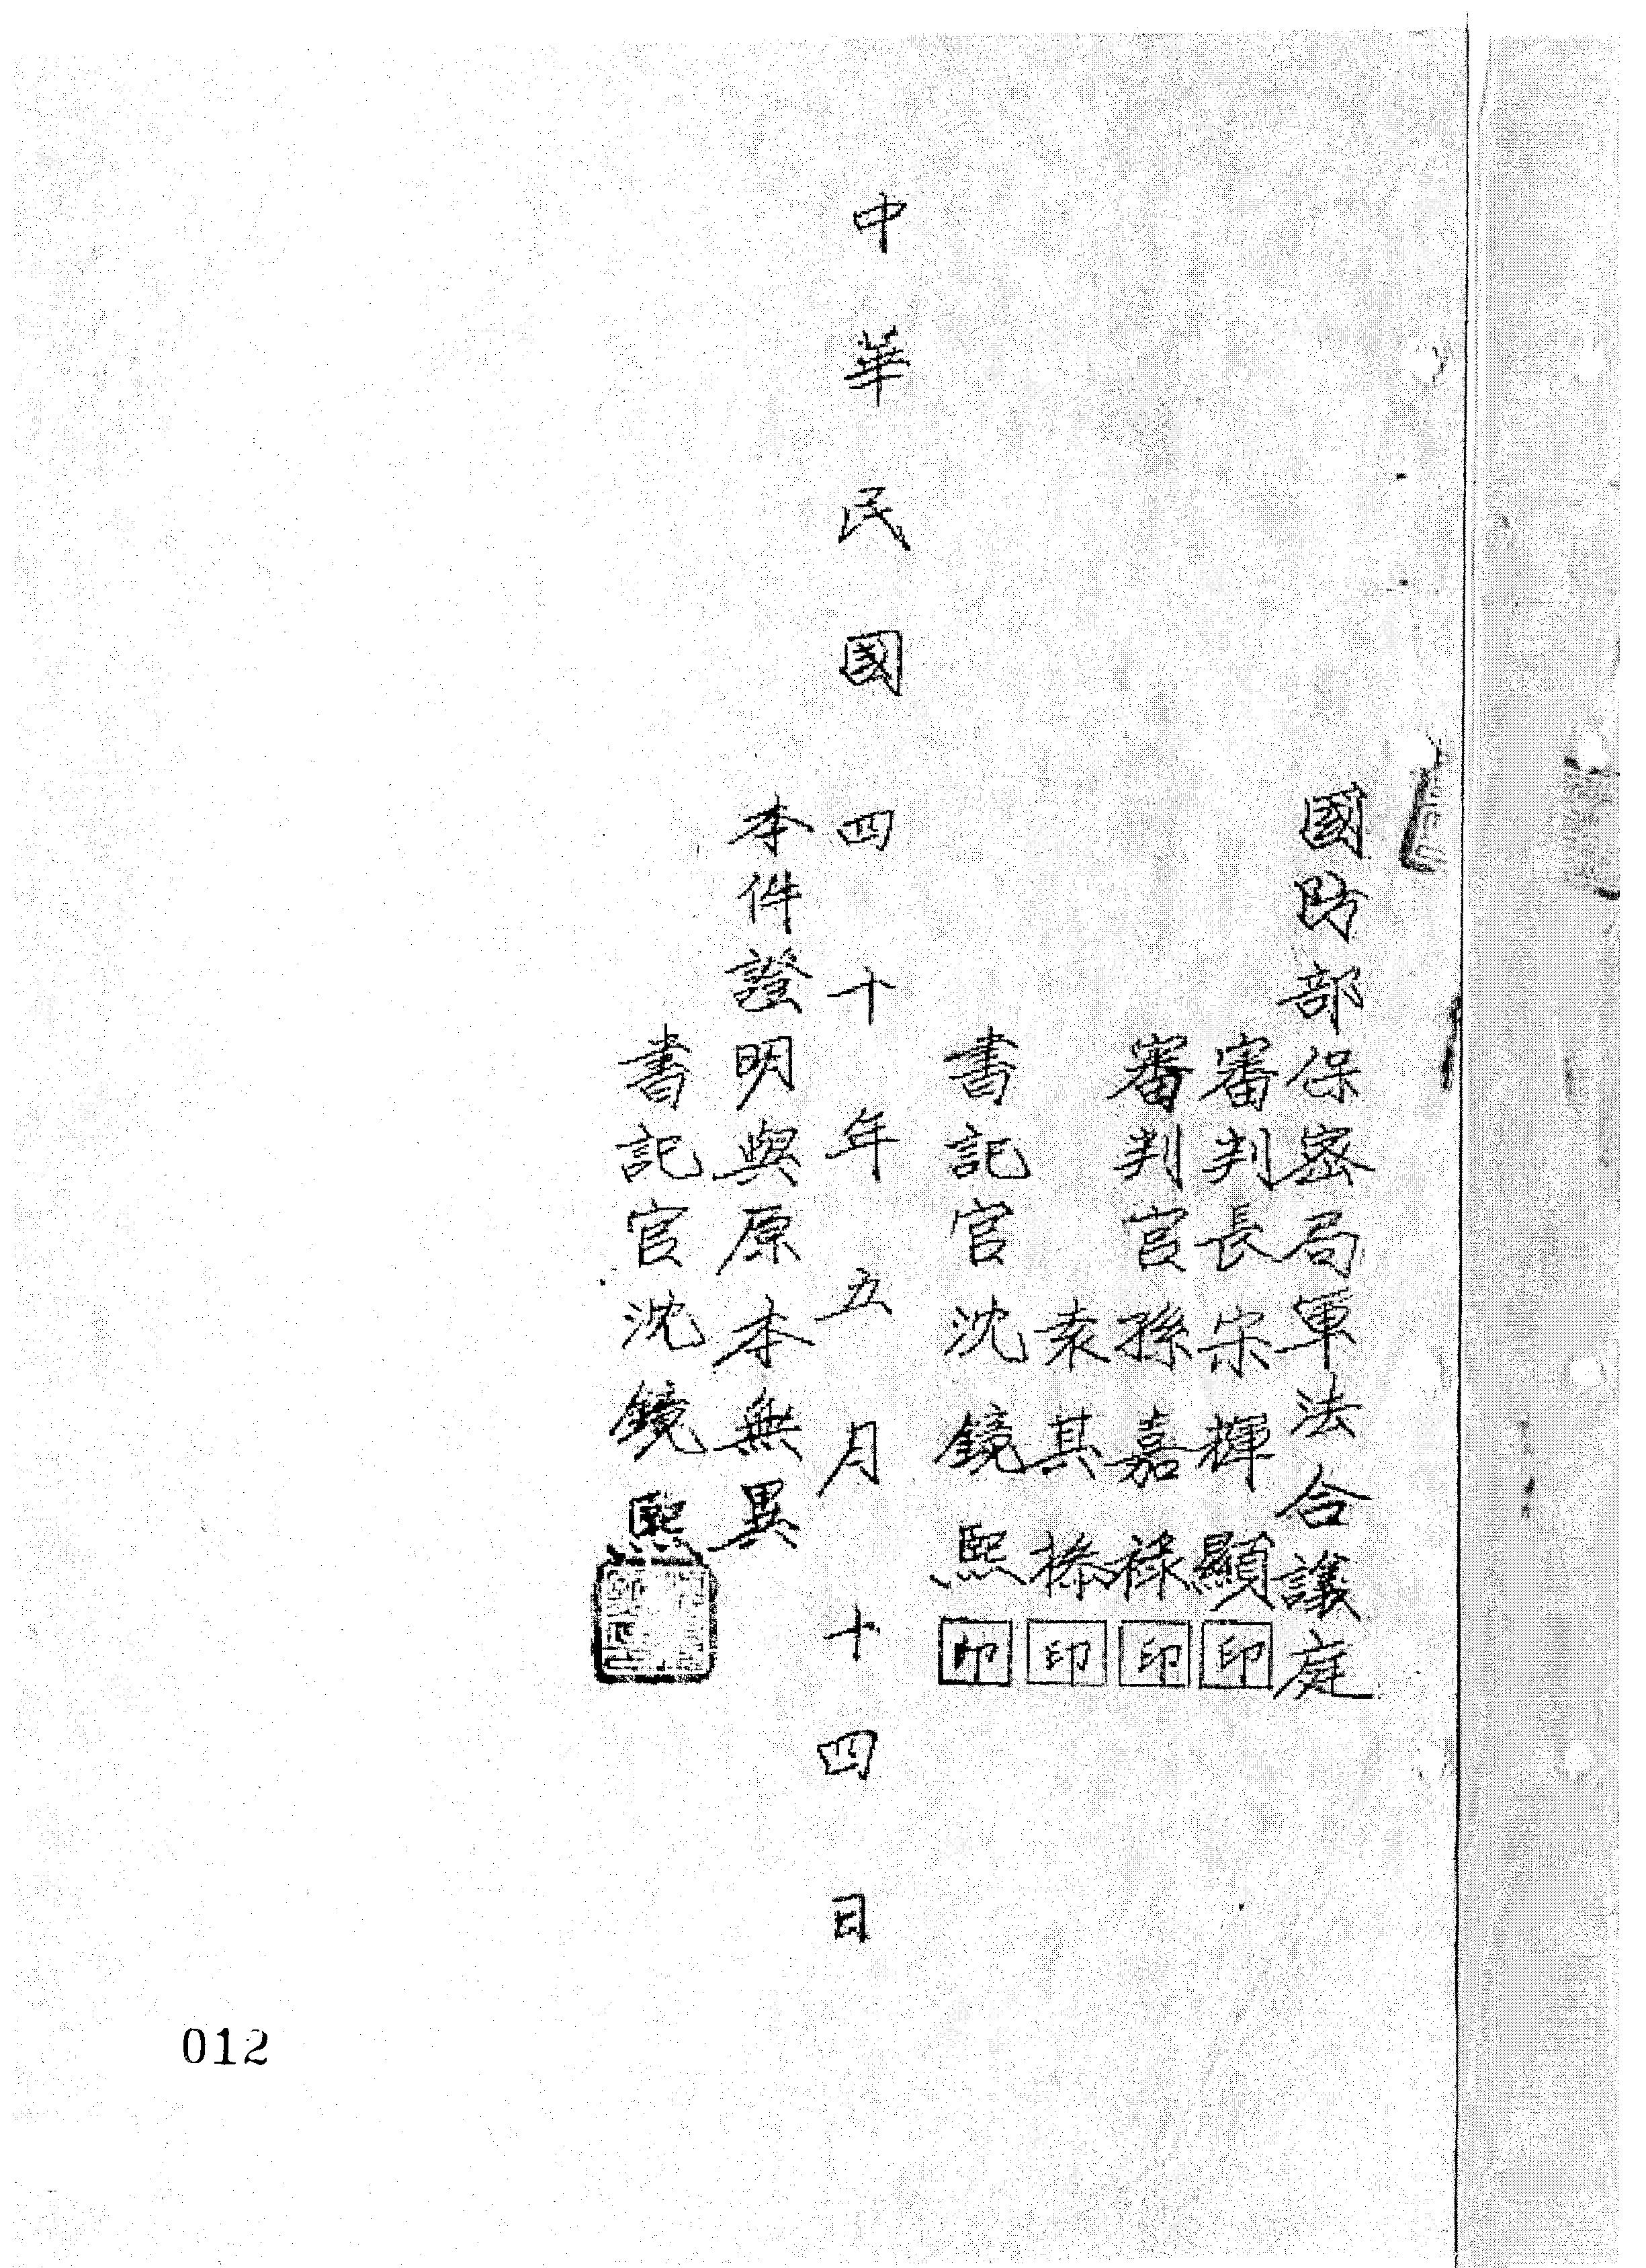 國防部保密局軍法合議庭
審判長宋輝顯印
審判官孫嘉祿印
袁其榛印
書記官沈鏡熙印
中華民國四十年五月十四日
本件證明與原本無異
書記官沈鏡熙
012